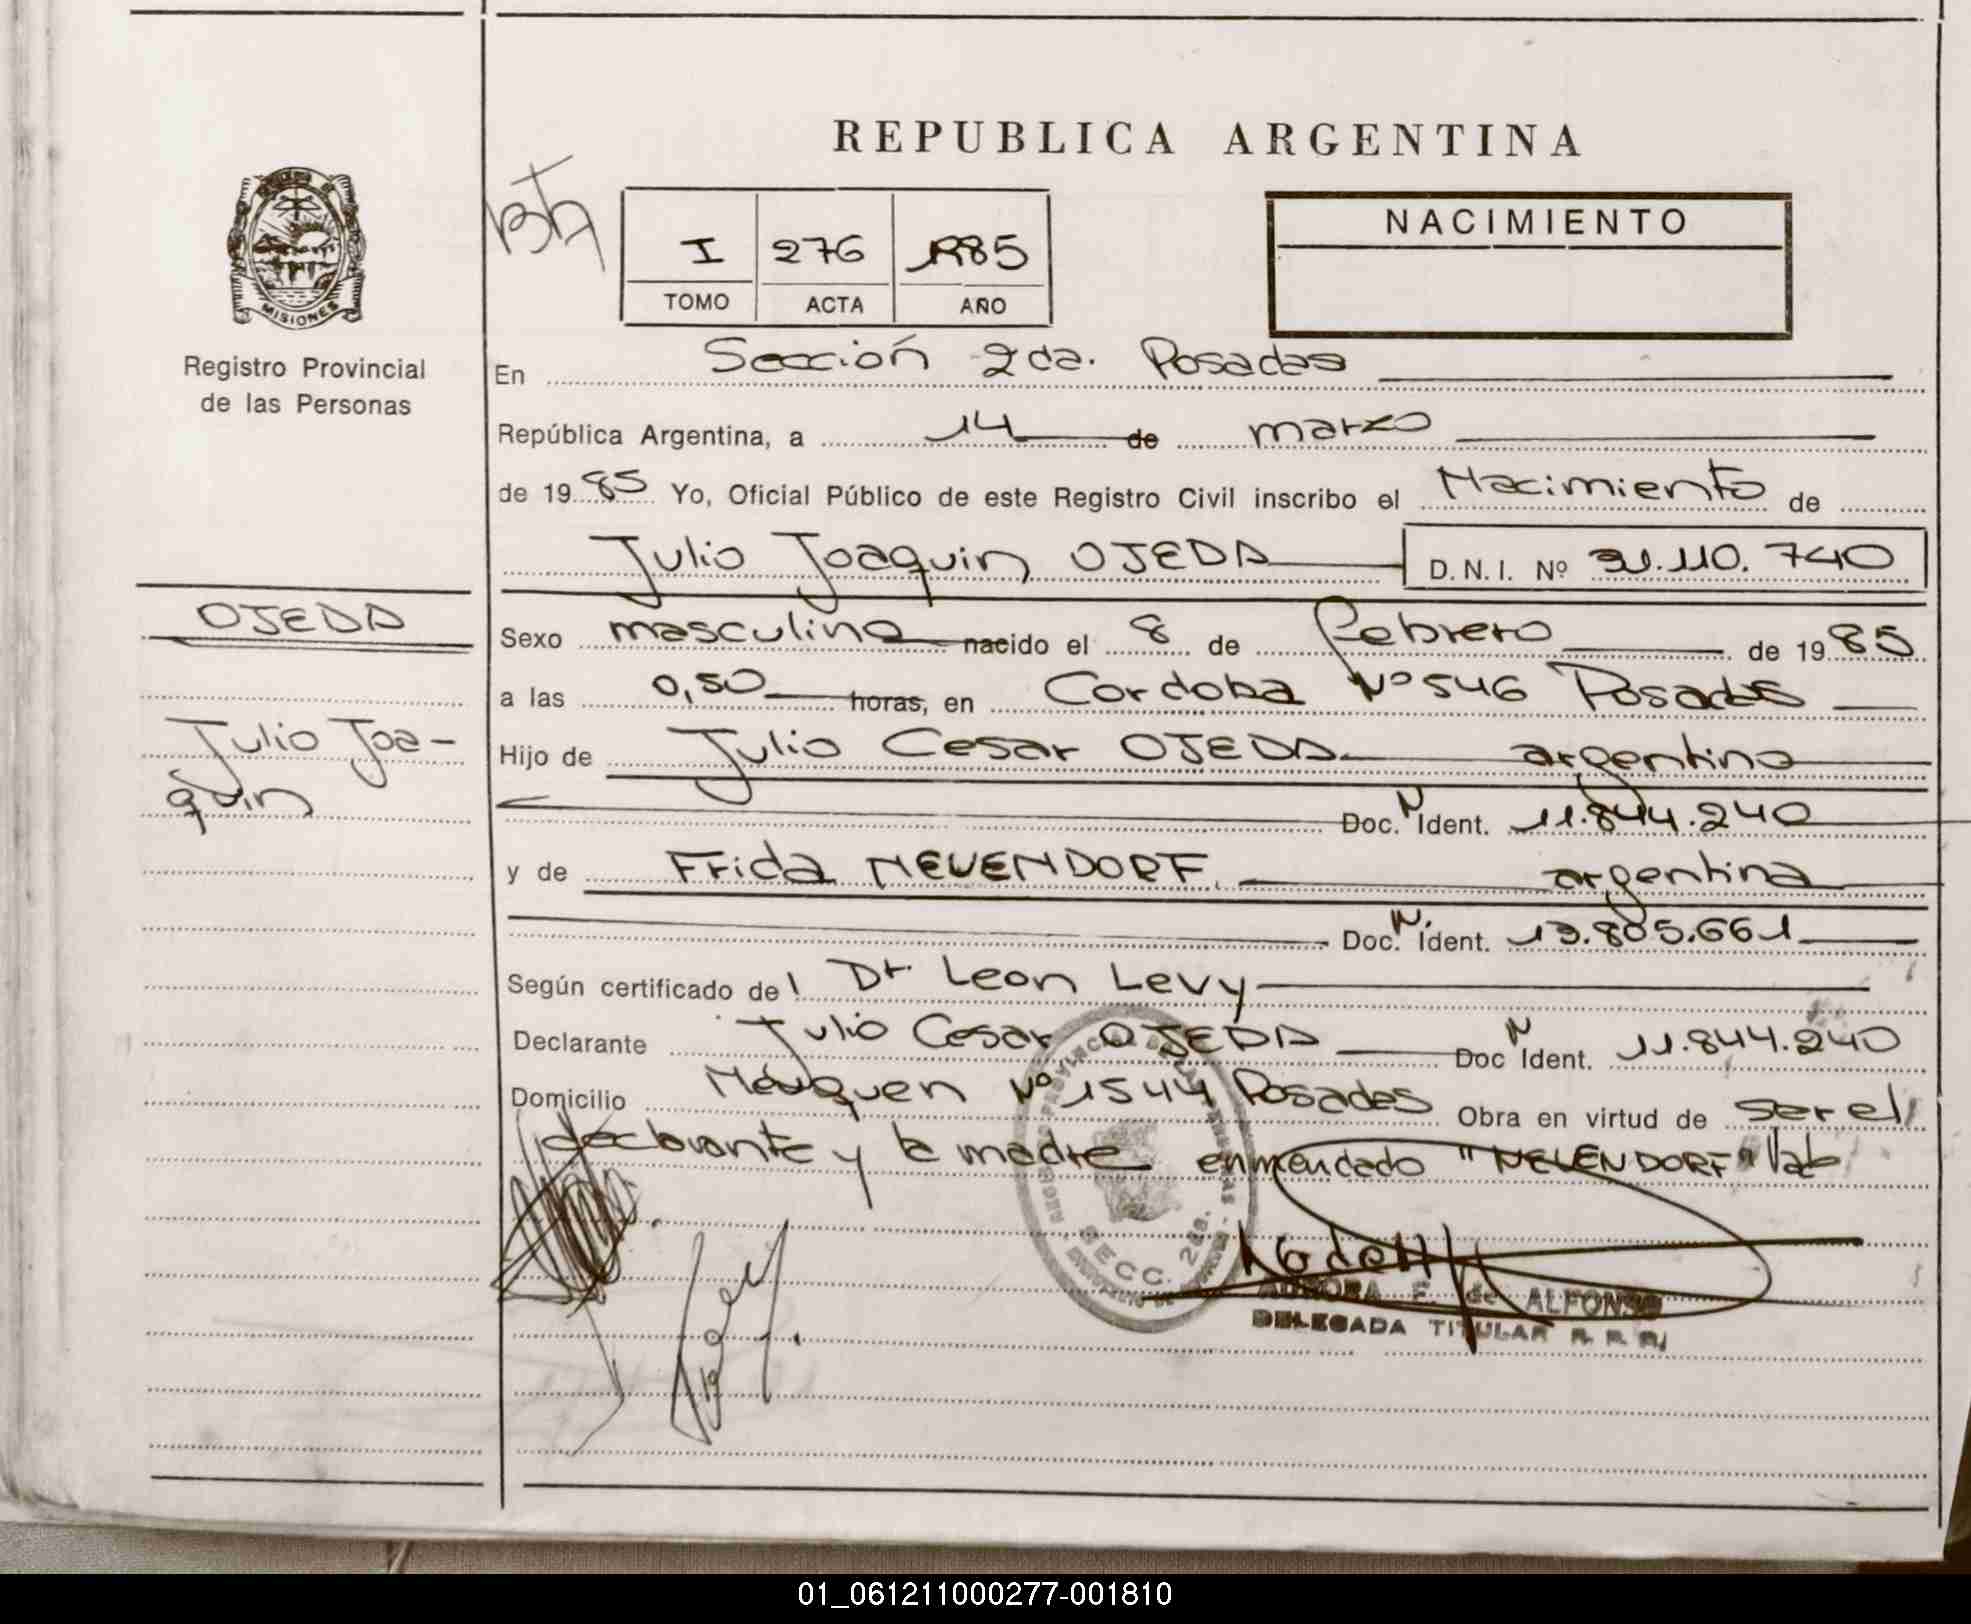 REPUBLICA ARGENTINA
MISIONES
Registro Provincial
de las Personas
I 276 1985
TOMO ACTA AÑO
NACIMIENTO
En Sección 2da. Posadas
República Argentina, a 14 de marzo
de 1985 Yo, Oficial Público de este Registro Civil inscribo el Nacimiento de
Julio Joaquin OJEDA D.N.I. Nº 31.110.740
OJEDA
Julio Joa-
quin
Sexo masculino nacido el 8 de Febrero de 1985
a las 0,50 horas, en Cordoba Nº 546 Posadas
Hijo de Julio Cesar OJEDA argentino
Doc. N Ident. 11.844.240
y de Frida NEUENDORF argentina
Doc. N. Ident. 13.805.661
Según certificado del Dr Leon Levy
Declarante Julio Cesar OJEDA Doc N Ident. 11.844.240
Domicilio Neuquen Nº 1544 Posadas Obra en virtud de ser el
declarante y la madre enmendado "NEUENDORF" Vale
SECC. 2da.
AURORA E. de ALFONSO
DELEGADA TITULAR R. P. P.
01_061211000277-001810